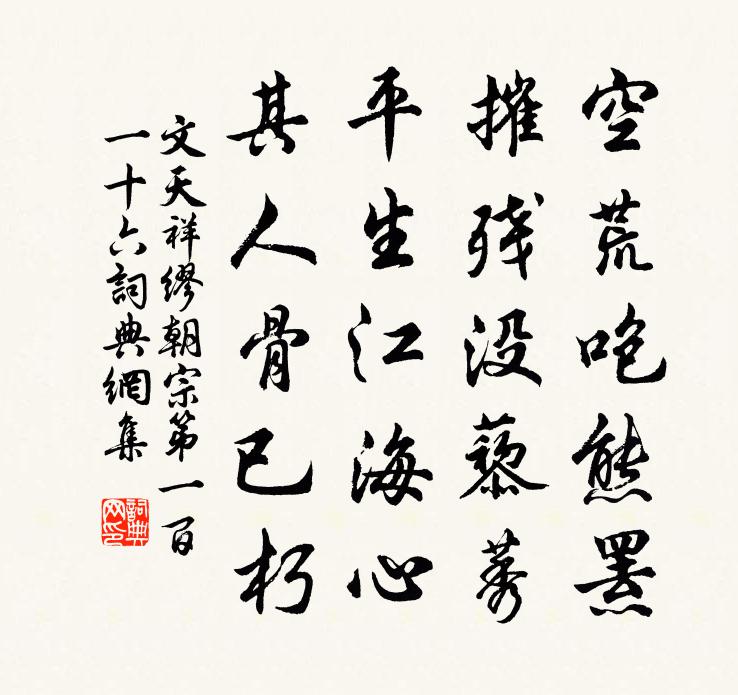 空荒咆熊罴
摧残没藜莠
平生江海心
其人骨已朽
文天祥繆朝宗第一百
一十六詞典網集
詞典网印